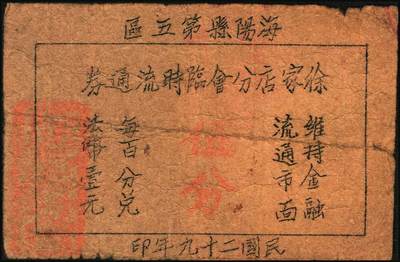 海陽縣第五區
徐家店分會臨時流通券
維持金融
流通市面
伍分
每百分兌
法幣壹元
民國二十九年印